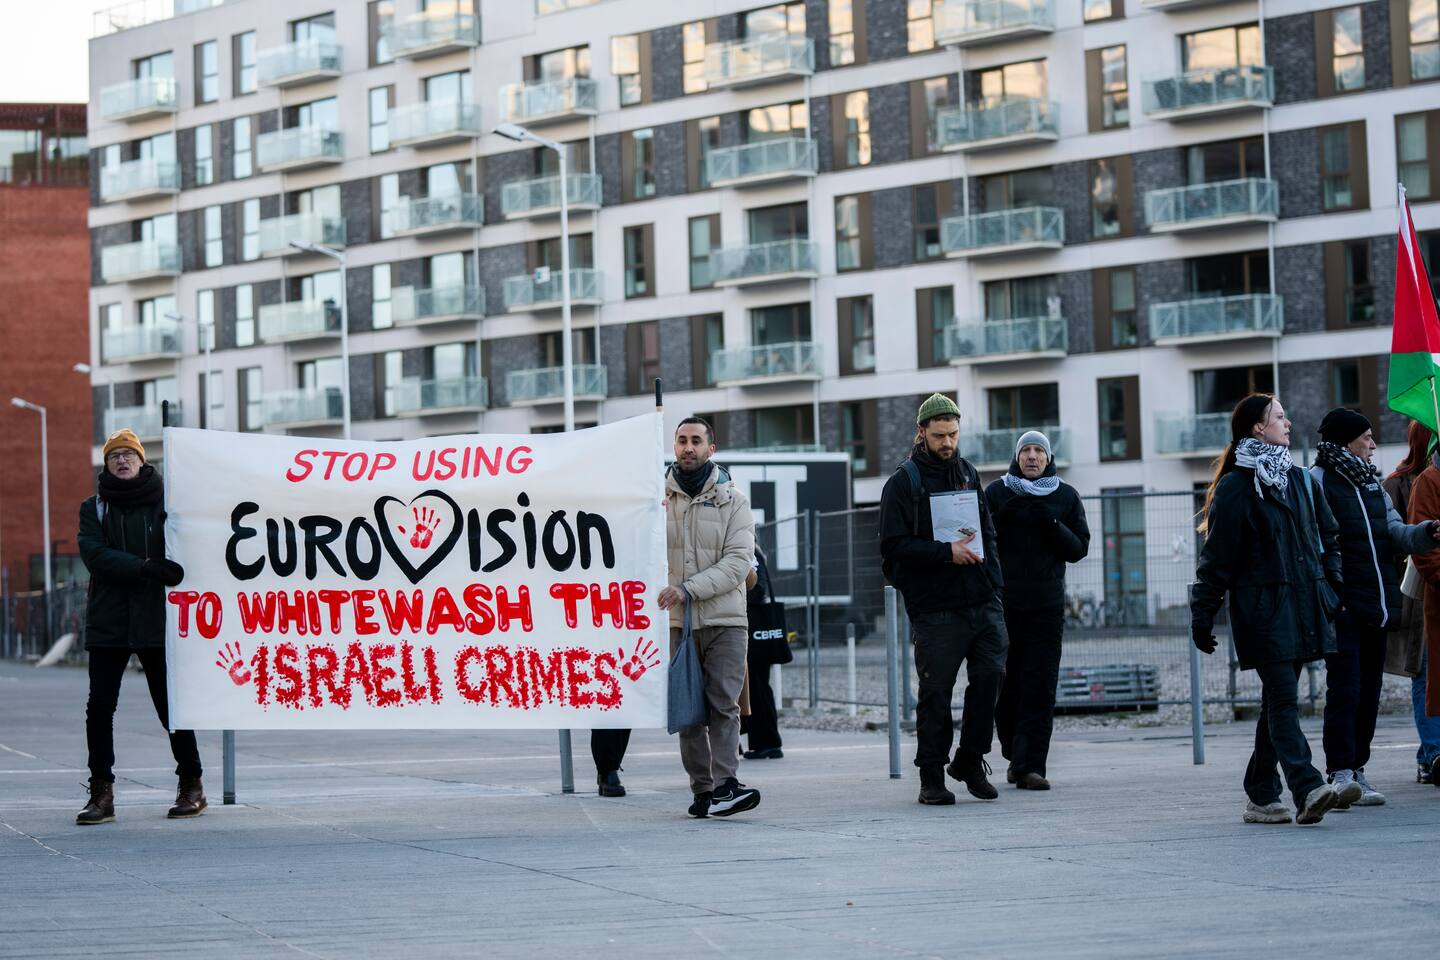 STOP USING
EUROVISION
TO WHITEWASH THE
ISRAELI CRIMES
CBRE